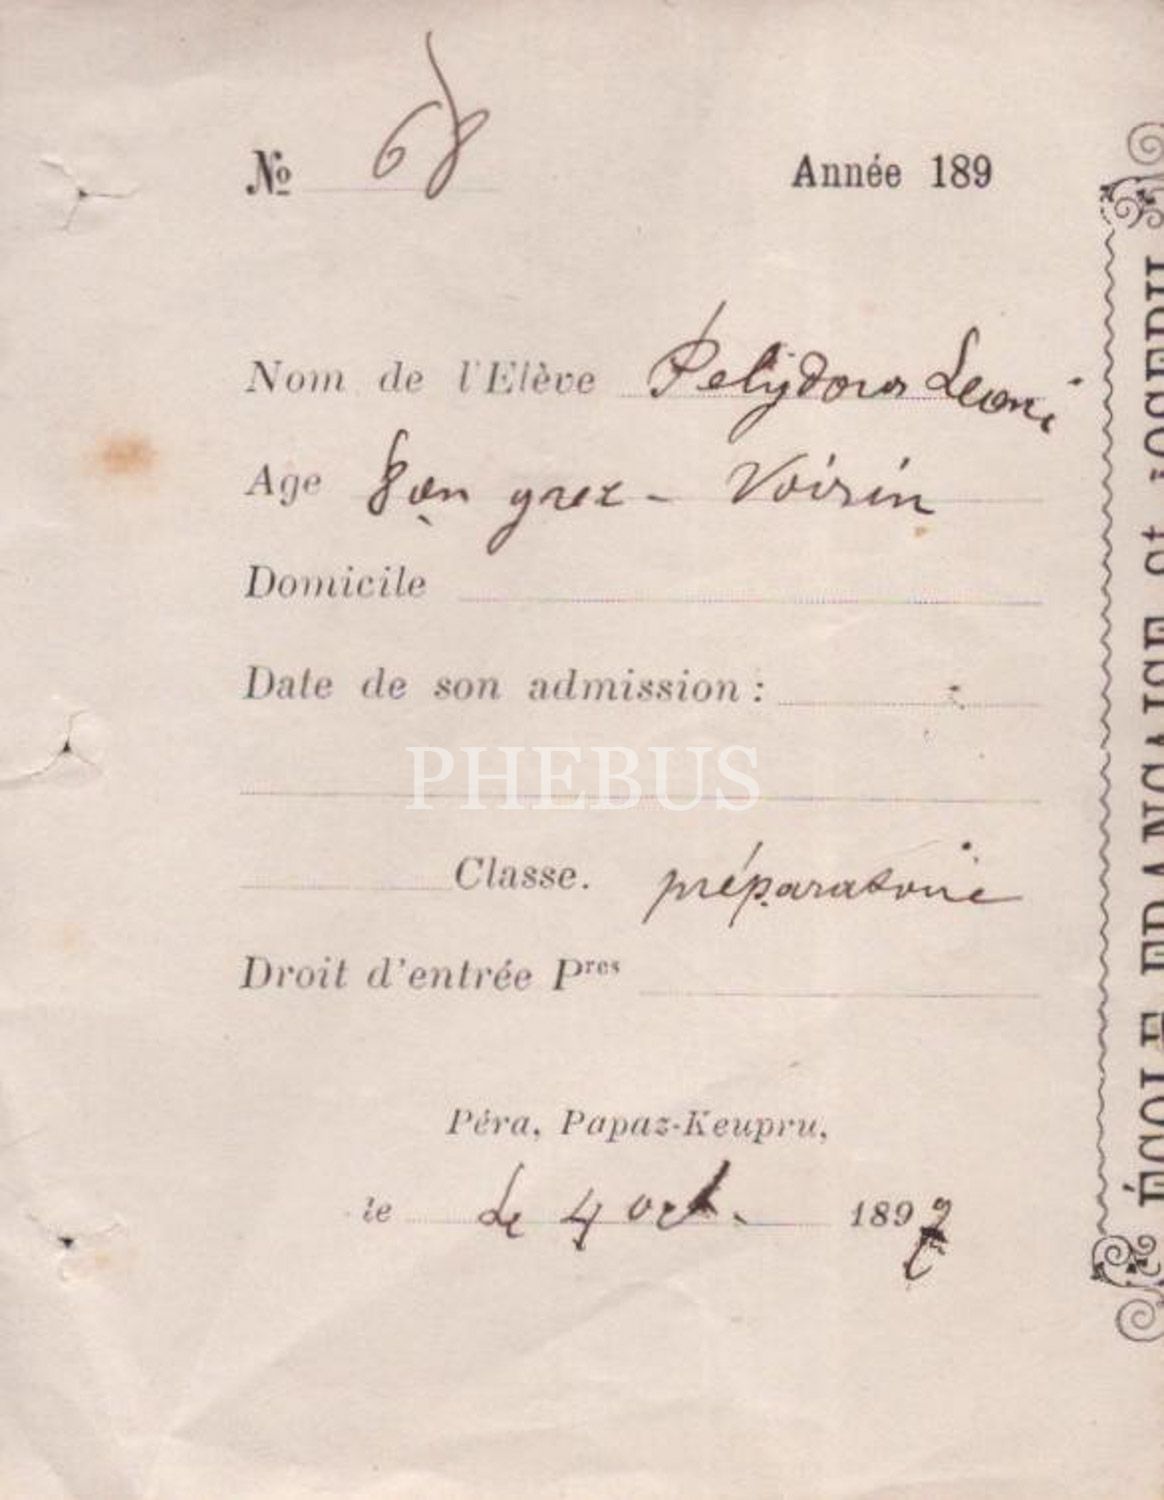 № 68 Année 189
Nom de l'Elève Pelydoros Leoni
Age 8 an grec - Voisin
Domicile
Date de son admission :
PHEBUS
Classe. préparatoire
Droit d'entrée Pres
Péra, Papaz-Keupru,
le Le 4 oct. 189
ÉCOLE FRANÇAISE St JOSEPH